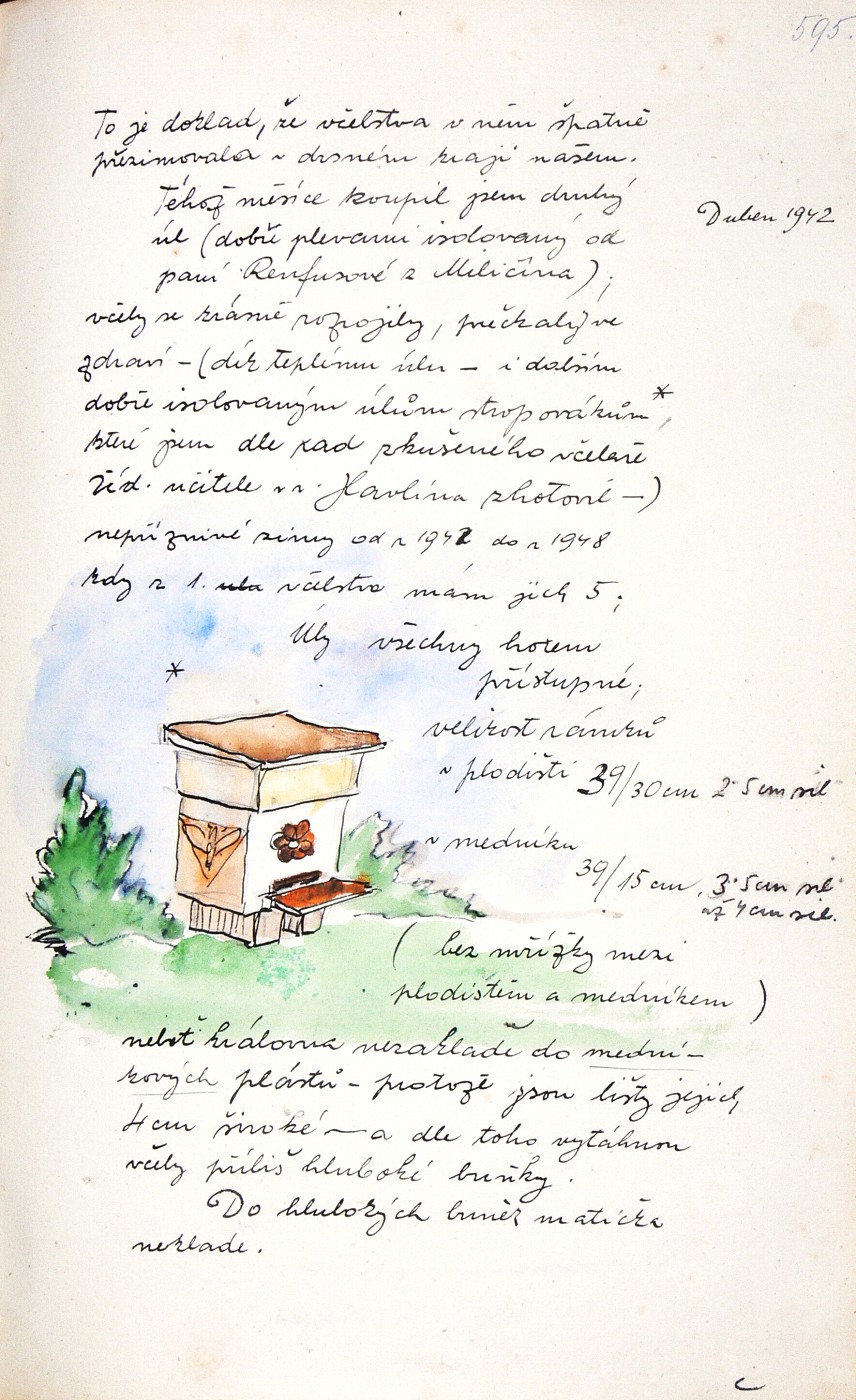 595.
To je doklad, že včelstva v něm špatně
přezimovala v drsném kraji našem.
Téhož měsíce koupil jsem druhý
Duben 1942
úl (dobře plevami isolovaný od
paní Renfusové z Miličína);
včely se krásně rozrojily, přečkaly ve
zdraví – (dík teplému úlu – i dalším
dobře isolovaným úlům stropovákům*,
které jsem dle rad zkušeného včelaře
říd. učitele v. v. Havlína zhotovil –)
nepříznivé zimy od r 1942 do r 1948
kdy z 1. ula včelstva mám jich 5;
Úly všechny hořem
přístupné;
*
velikost rámků
v plodišti 39/30 cm 2·5 cm sil
v medníku
39/15 cm, 3·5 cm sil
až 4 cm sil.
( bez mřížky mezi
plodištěm a medníkem )
neboť královna nezaklade do mední-
kových plástů – protože jsou lišty jejich
4 cm široké – a dle toho vytáhnou
včely příliš hluboké buňky.
Do hlubokých buněk matička
neklade.